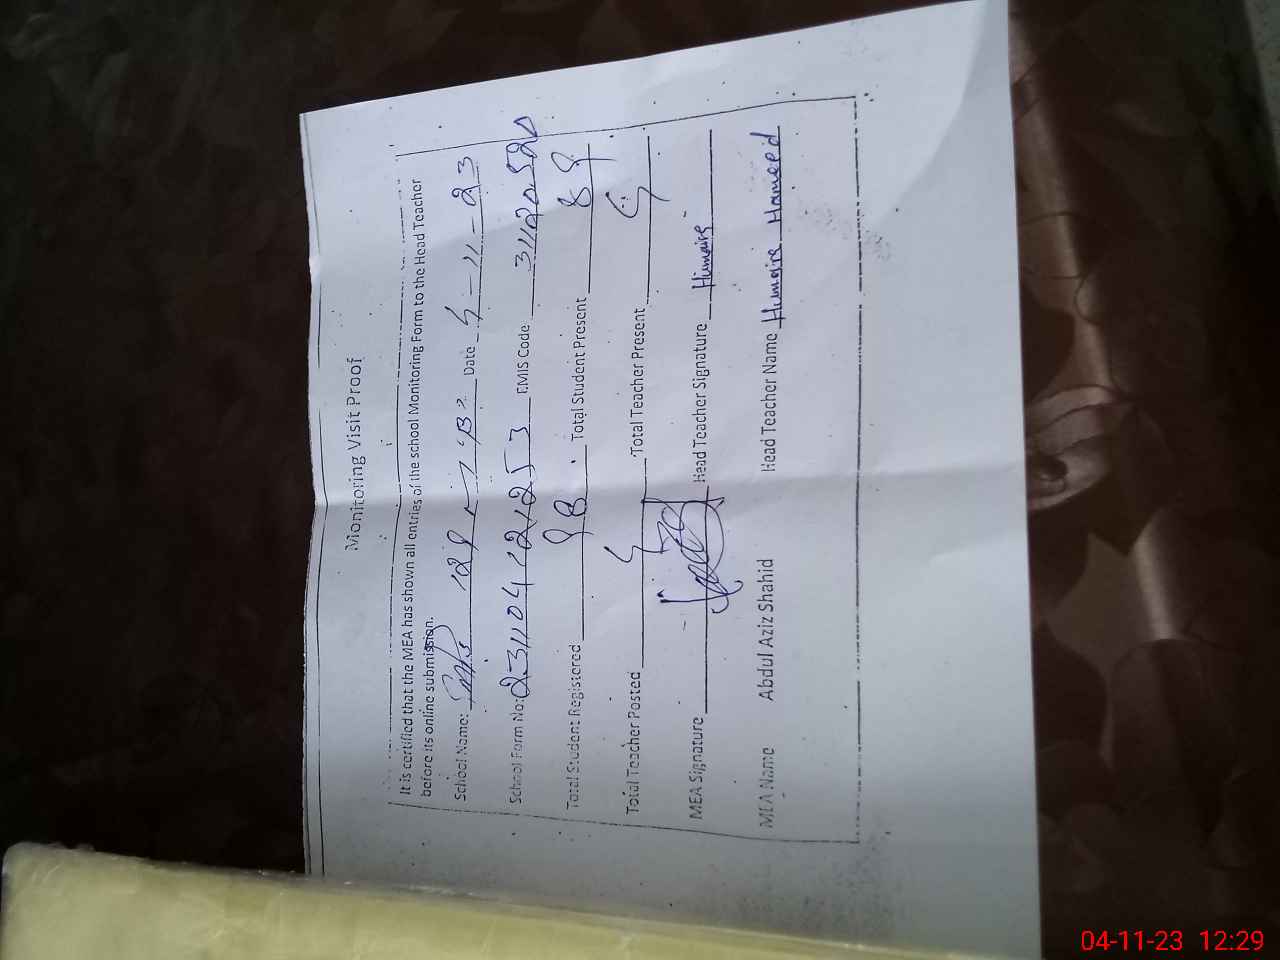 Monitoring Visit Proof
It is certified that the MEA has shown all entries of the school Monitoring Form to the Head Teacher
before its online submission.
School Name: Date 4-11-23
School Form No: 231104121253 EMIS Code 31120520
Total Student Registered 98 Total Student Present 89
Total Teacher Posted 4 Total Teacher Present 4
MEA Signature Head Teacher Signature Humaira
MEA Name Abdul Aziz Shahid Head Teacher Name Humaira Hameed
04-11-23 12:29